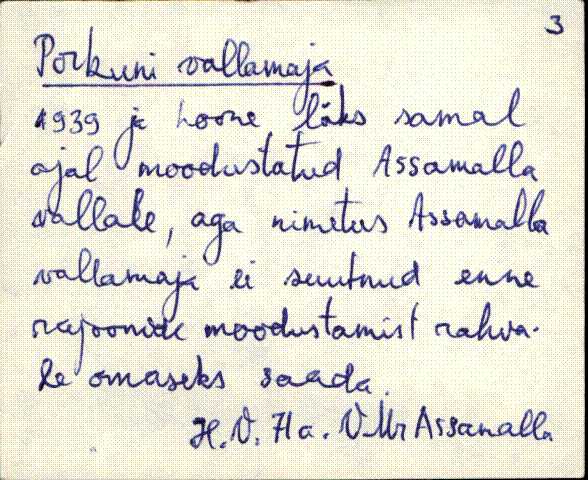 3
Porkuni vallamaja
1939 ja hoone läks samal
ajal moodustatud Assamalla
vallale, aga nimetus Assamalla
vallamaja ei suutnud enne
rajoonide moodustamist rahva-
le omaseks saada.
H. V. 71a. V-Mr Assamalla